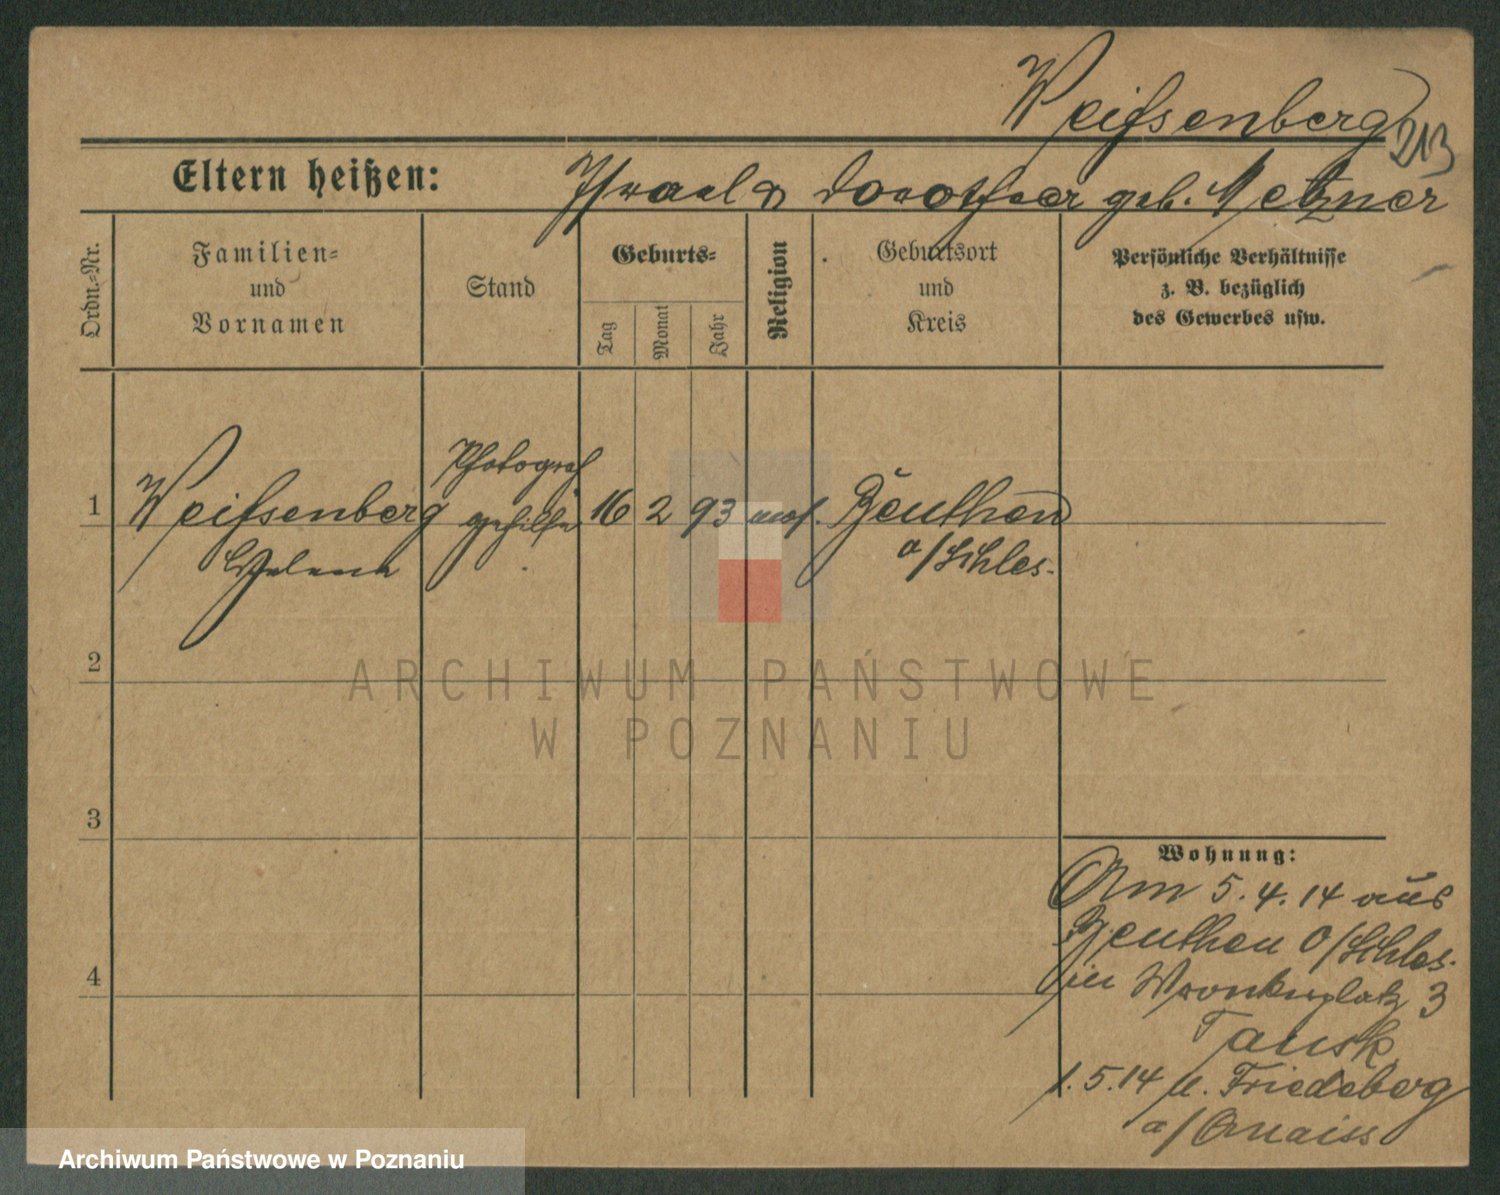 Weißenberg
213
Eltern heißen: Israel & Dorothea geb. Metzner
Ordn.-Nr.
Familien-
und
Vornamen
Stand
Geburts-
Tag
Monat
Jahr
Religion
Geburtsort
und
Kreis
Persönliche Verhältnisse
z. B. bezüglich
des Gewerbes usw.
Photograf
1 Weißenberg gehilfin 16 2 93 mos. Beuthen
Helene o/Schles.
2
3
4
ARCHIWUM PAŃSTWOWE
W POZNANIU
Wohnung:
Am 5.4.14 aus
Beuthen O/Schles.
in Wronkerplatz 3
Tausk
1.5.14 n. Friedeberg
a/Quaiss
Archiwum Państwowe w Poznaniu